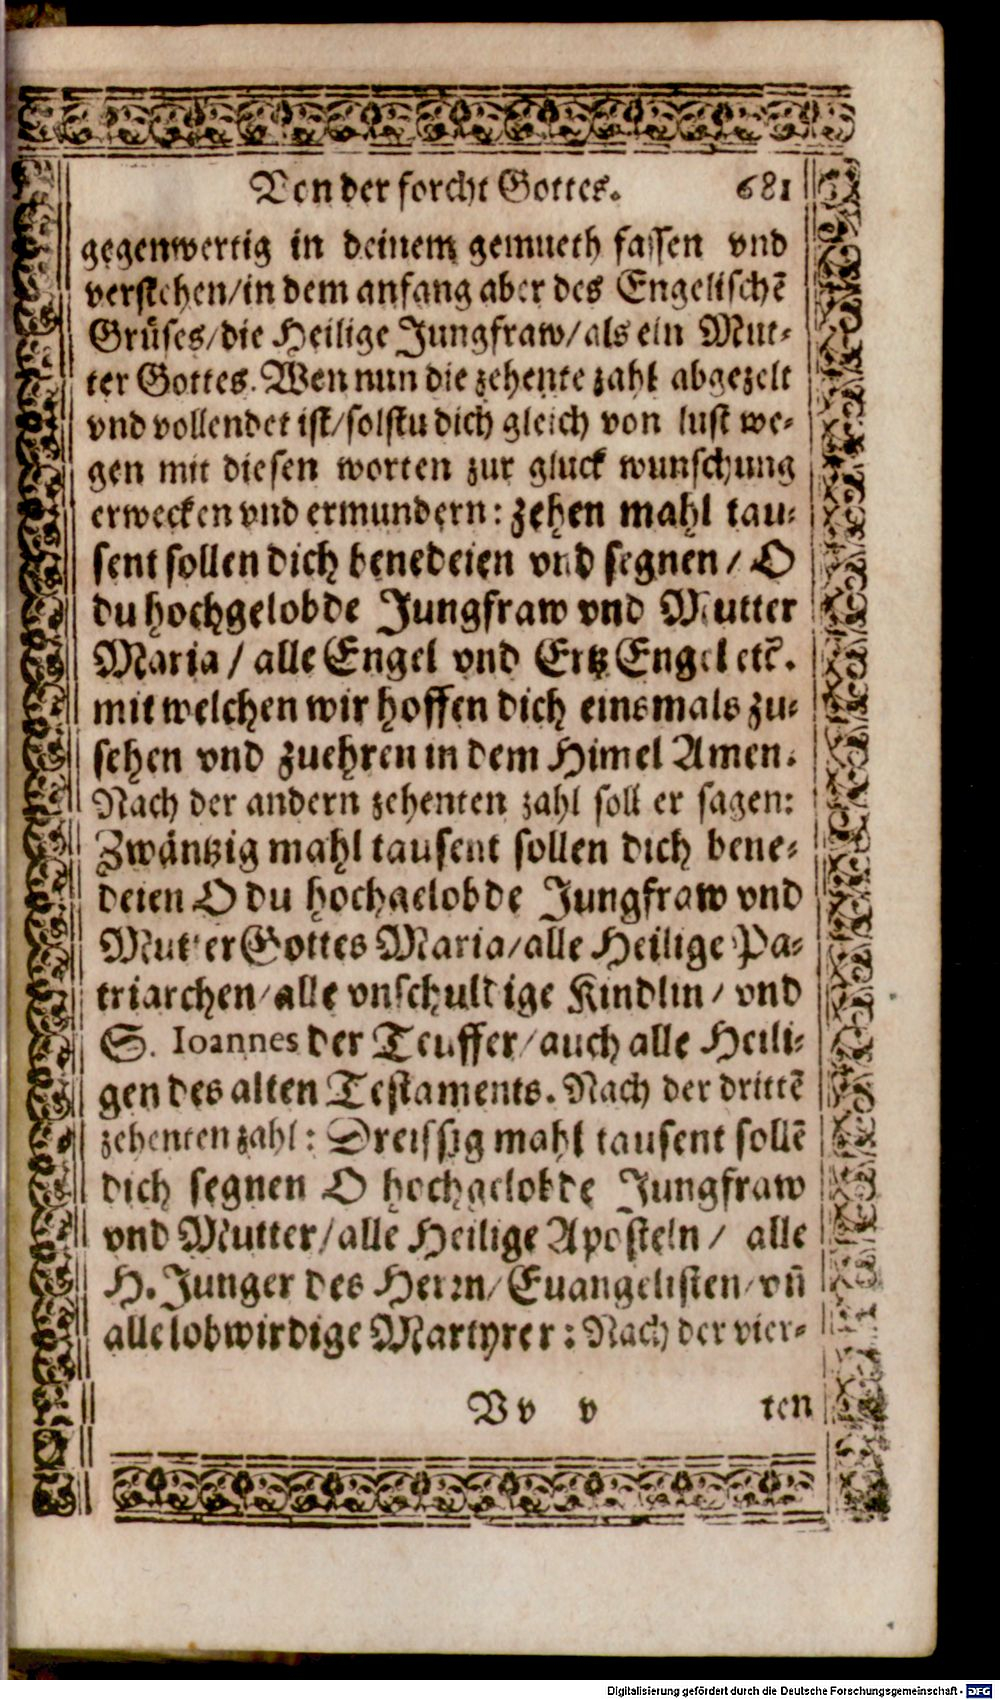 Von der forcht Gottes. 681
gegenwertig in deinem gemueth fassen vnd
verstehen/in dem anfang aber des Engelischē
Grüses/die Heilige Jungfraw/als ein Mut-
ter Gottes. Wen nun die zehente zahl abgezelt
vnd vollendet ist/solstu dich gleich von lust we-
gen mit diesen worten zur gluck wunschung
erwecken vnd ermundern: zehen mahl tau-
sent sollen dich benedeien vnd segnen/ O
du hochgelobde Jungfraw vnd Mutter
Maria/ alle Engel vnd Ertz Engel etc̄.
mit welchen wir hoffen dich einsmals zu-
sehen vnd zuehren in dem Himel Amen.
Nach der andern zehenten zahl soll er sagen:
Zwäntzig mahl tausent sollen dich bene-
deien O du hochgelobde Jungfraw vnd
Mutter Gottes Maria/alle Heilige Pa-
triarchen/alle vnschuldige Kindlin/ vnd
S. Ioannes der Teuffer/auch alle Heili-
gen des alten Testaments. Nach der drittē
zehenten zahl: Dreissig mahl tausent sollē
dich segnen O hochgelobde Jungfraw
vnd Mutter/alle Heilige Aposteln/ alle
H. Junger des Herrn/Euangelisten/vn̄
alle lobwirdige Martyrer: Nach der vier-
Vv v ten
Digitalisierung gefördert durch die Deutsche Forschungsgemeinschaft - DFG